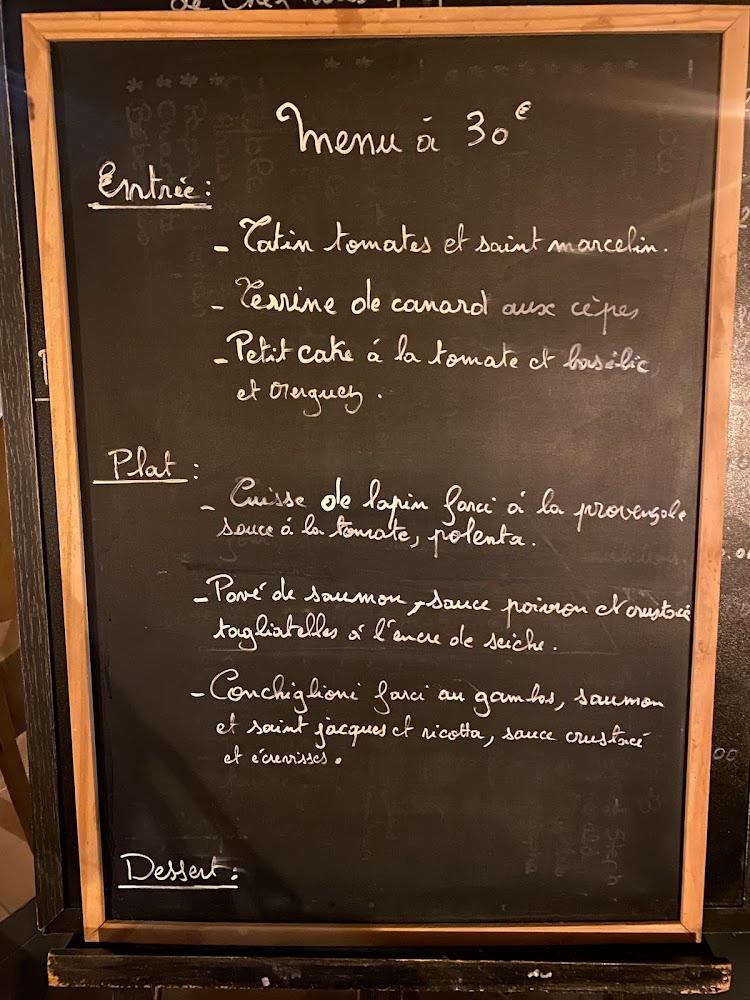 Menu à 30€
Entrée :
- Tatin tomates et saint marcelin.
- Terrine de canard aux cèpes
- Petit cake à la tomate et basilic
et
Plat :
- Cuisse de lapin farci à la provençale
sauce à la tomate, polenta.
- Pavé de saumon, sauce poivron et crustacé
tagliatelles à l'encre de seiche.
- Conchiglioni farci au gambas, saumon
et saint jacques et ricotta, sauce crustacé
et écrevisses.
Dessert :